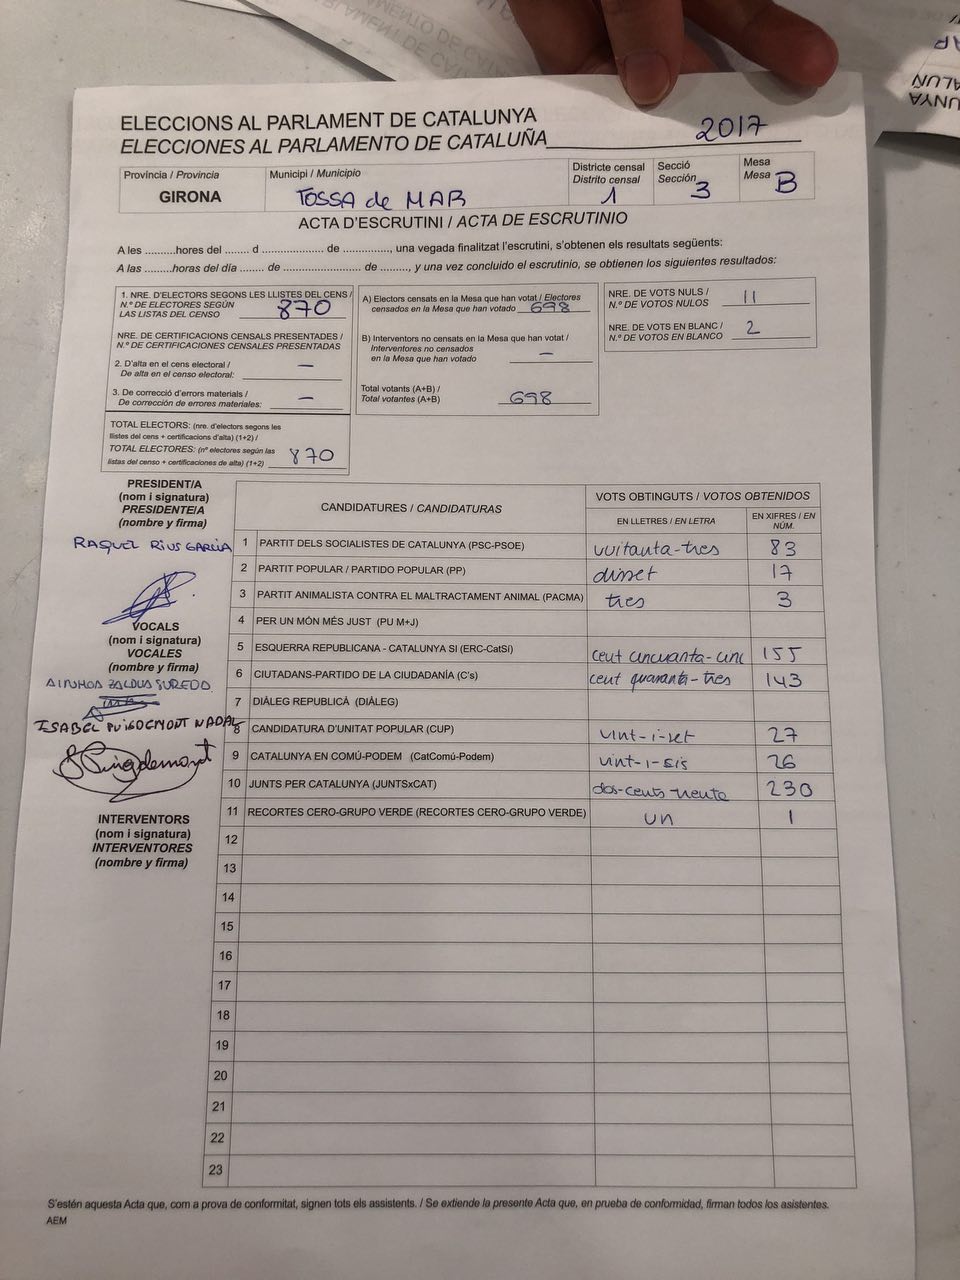 ELECCIONS AL PARLAMENT DE CATALUNYA
ELECCIONES AL PARLAMENTO DE CATALUÑA 2017
Província / Provincia
GIRONA
Municipi / Municipio
TOSSA de MAR
Districte censal
Distrito censal 1
Secció
Sección 3
Mesa
Mesa B
ACTA D'ESCRUTINI / ACTA DE ESCRUTINIO
A les .........hores del ....... d ...................... de ..............., una vegada finalitzat l'escrutini, s'obtenen els resultats següents:
A las .........horas del día ....... de ....................... de ........, y una vez concluido el escrutinio, se obtienen los siguientes resultados:
1. NRE. D'ELECTORS SEGONS LES LLISTES DEL CENS /
N.º DE ELECTORES SEGÚN
LAS LISTAS DEL CENSO 870
NRE. DE CERTIFICACIONS CENSALS PRESENTADES /
N.º DE CERTIFICACIONES CENSALES PRESENTADAS
2. D'alta en el cens electoral /
De alta en el censo electoral: —
3. De correcció d'errors materials /
De corrección de errores materiales: —
TOTAL ELECTORS: (nre. d'electors segons les
llistes del cens + certificacions d'alta) (1+2) /
TOTAL ELECTORES: (nº electores según las
listas del censo + certificaciones de alta) (1+2) 870
A) Electors censats en la Mesa que han votat / Electores
censados en la Mesa que han votado 698
B) Interventors no censats en la Mesa que han votat /
Interventores no censados
en la Mesa que han votado —
Total votants (A+B) /
Total votantes (A+B) 698
NRE. DE VOTS NULS /
N.º DE VOTOS NULOS 11
NRE. DE VOTS EN BLANC /
N.º DE VOTOS EN BLANCO 2
PRESIDENT/A
(nom i signatura)
PRESIDENTE/A
(nombre y firma)
RAQUEL RIUS GARCIA
VOCALS
(nom i signatura)
VOCALES
(nombre y firma)
AINHOA ZALDUA SUREDA
ISABEL PUIGDEMONT NADAL
Puigdemont
INTERVENTORS
(nom i signatura)
INTERVENTORES
(nombre y firma)
CANDIDATURES / CANDIDATURAS
VOTS OBTINGUTS / VOTOS OBTENIDOS
EN LLETRES / EN LETRA
EN XIFRES / EN
NÚM.
1 PARTIT DELS SOCIALISTES DE CATALUNYA (PSC-PSOE) vuitanta-tres 83
2 PARTIT POPULAR / PARTIDO POPULAR (PP) disset 17
3 PARTIT ANIMALISTA CONTRA EL MALTRACTAMENT ANIMAL (PACMA) tres 3
4 PER UN MÓN MÉS JUST (PU M+J)
5 ESQUERRA REPUBLICANA - CATALUNYA SI (ERC-CatSí) cent cincuanta-cinc 155
6 CIUTADANS-PARTIDO DE LA CIUDADANÍA (C's) cent quaranta-tres 143
7 DIÀLEG REPUBLICÀ (DIÀLEG)
8 CANDIDATURA D'UNITAT POPULAR (CUP) vint-i-set 27
9 CATALUNYA EN COMÚ-PODEM (CatComú-Podem) vint-i-sis 26
10 JUNTS PER CATALUNYA (JUNTSxCAT) dos-cents trenta 230
11 RECORTES CERO-GRUPO VERDE (RECORTES CERO-GRUPO VERDE) un 1
12
13
14
15
16
17
18
19
20
21
22
23
S'estén aquesta Acta que, com a prova de conformitat, signen tots els assistents. / Se extiende la presente Acta que, en prueba de conformidad, firman todos los asistentes.
AEM